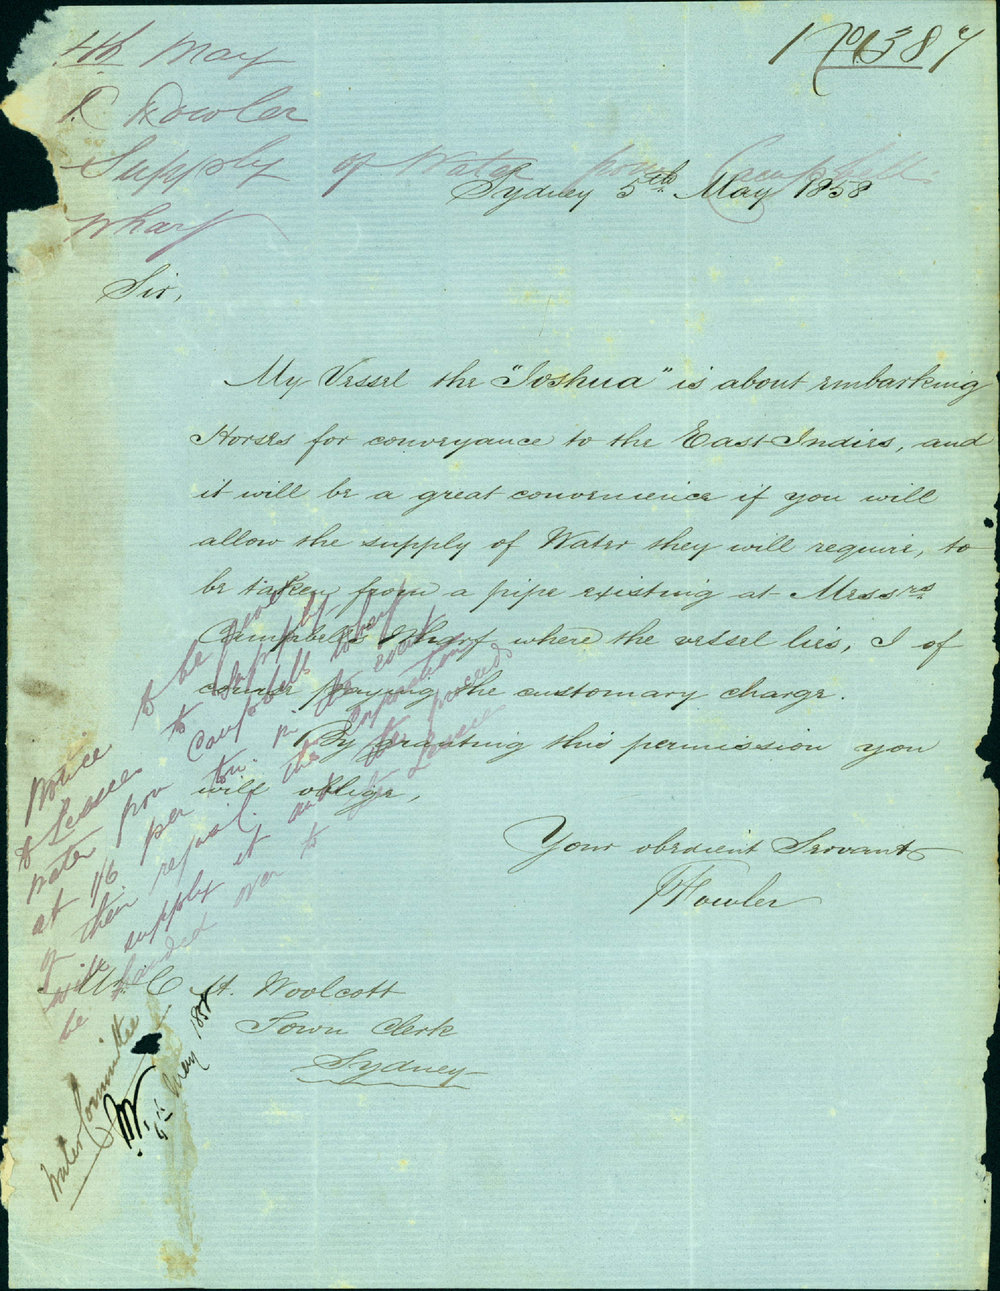 No. 387
4th May
R Fowler
Supply of Water from Campbells
Wharf
Sydney 5th May 1858
Sir,
My Vessel the "Joshua" is about embarking
Horses for conveyance to the East Indies, and
it will be a great convenience if you will
allow the supply of Water they will require, to
be taken from a pipe existing at Messrs
Campbells Wharf where the vessel lies, I of
course paying the customary charge.
By granting this permission you
will oblige,
Your obedient Servant
Fowler
St. Woolcott
Town Clerk
Sydney
Notice to be given
to Lessee to supply
water from Campbells Wharf
at 1/6 per ton. in the event
of their refusal the Corporation
will supply it and the proceeds
be handed over to the Lessee
Water Committee
May 1858